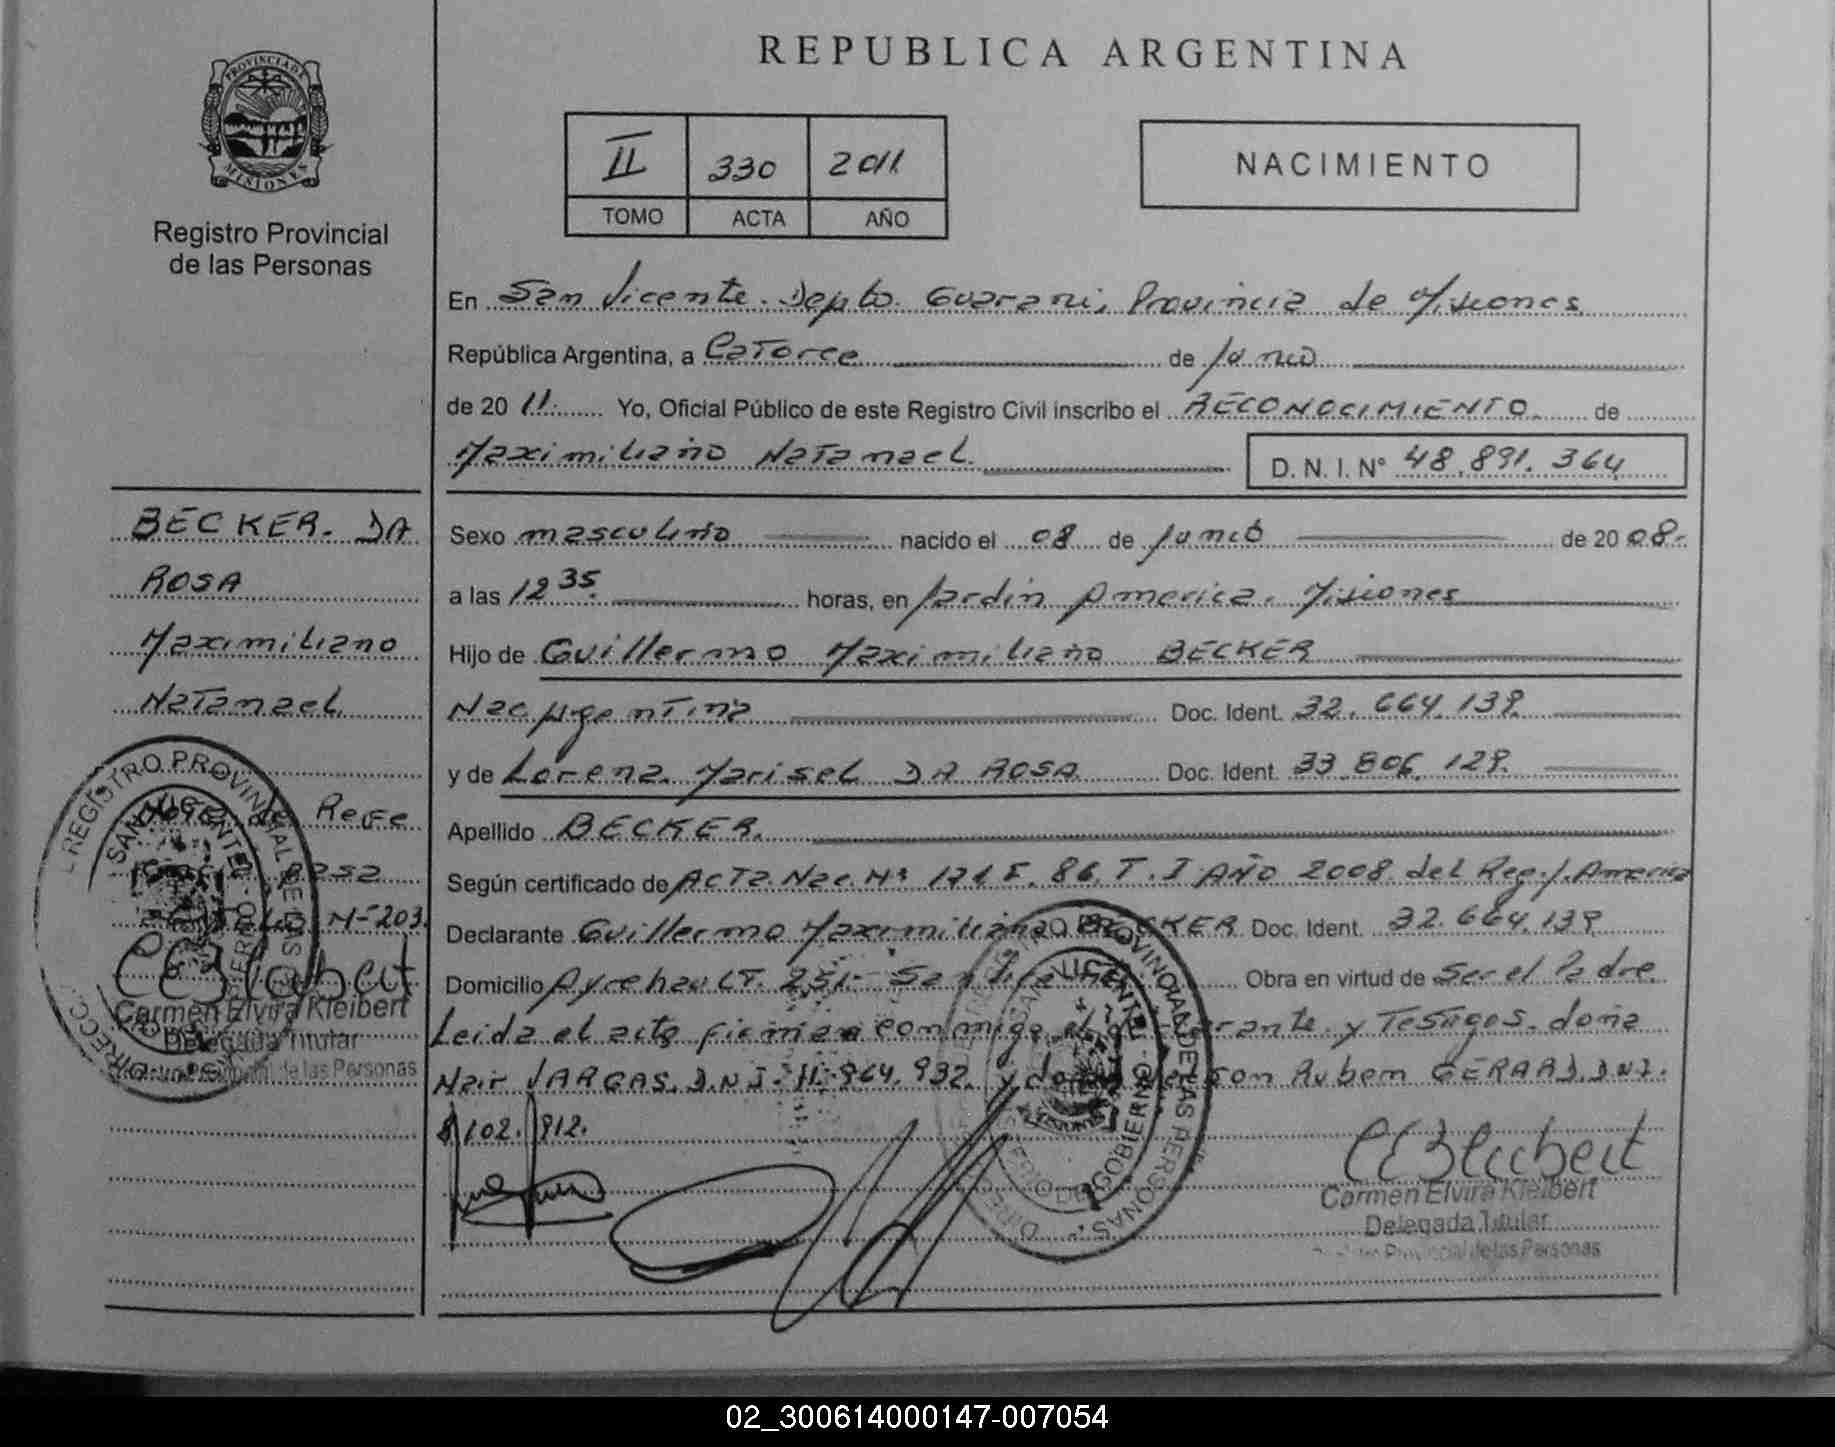 REPUBLICA ARGENTINA
PROVINCIA DE
MISIONES
Registro Provincial
de las Personas
II 330 2011
TOMO ACTA AÑO
NACIMIENTO
En San Vicente. Depto. Guarani, Provincia de Misiones
República Argentina, a Catorce de Junio
de 20 11. Yo, Oficial Público de este Registro Civil inscribo el RECONOCIMIENTO de
Maximiliano Natanael. D. N. I. N° 48.891.364
BECKER. DA
ROSA
Maximiliano
Natanael
Sexo masculino nacido el 08 de Junio de 20 08.
a las 12 35. horas, en Jardin America. Misiones
Hijo de Guillermo Maximiliano BECKER
Nac Argentina Doc. Ident. 32.664.139.
y de Lorena Marisel DA ROSA Doc. Ident. 33.806.129.
Apellido BECKER.
Según certificado de ACTA. Nac. Nº 171 F. 86. T. I AÑO 2008. del Reg. J. America
Declarante Guillermo Maximiliano BECKER Doc. Ident. 32.664.139
Domicilio Ayrehau LT. 251. San Vicente Obra en virtud de Ser el Padre.
Leida el acta firman conmigo el declarante y Testigos. doña
Nair VARGAS. D.N.I. 11.964.932. y don Nelson Ruben GERARD. DNI.
8.102.912.
Rece
N-203.
REGISTRO PROVINCIAL DE LAS PERSONAS
SAN VICENTE
Carmen Elvira Kleibert
Delegada Titular
Provincial de las Personas
PROVINCIAL DE LAS PERSONAS
SAN VICENTE
GOBIERNO
MISIONES
Carmen Elvira Kleibert
Delegada Titular
Provincial de las Personas
02_300614000147-007054